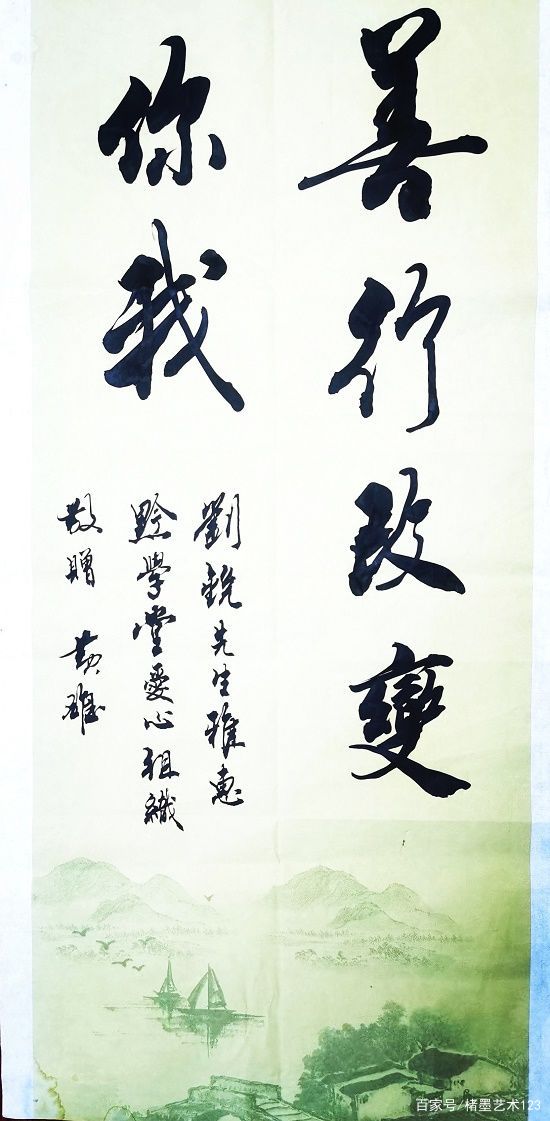 善行改變
你我
劉銳先生雅惠
黔學堂愛心組織
敬贈 黄雄
百家号/楮墨艺术123